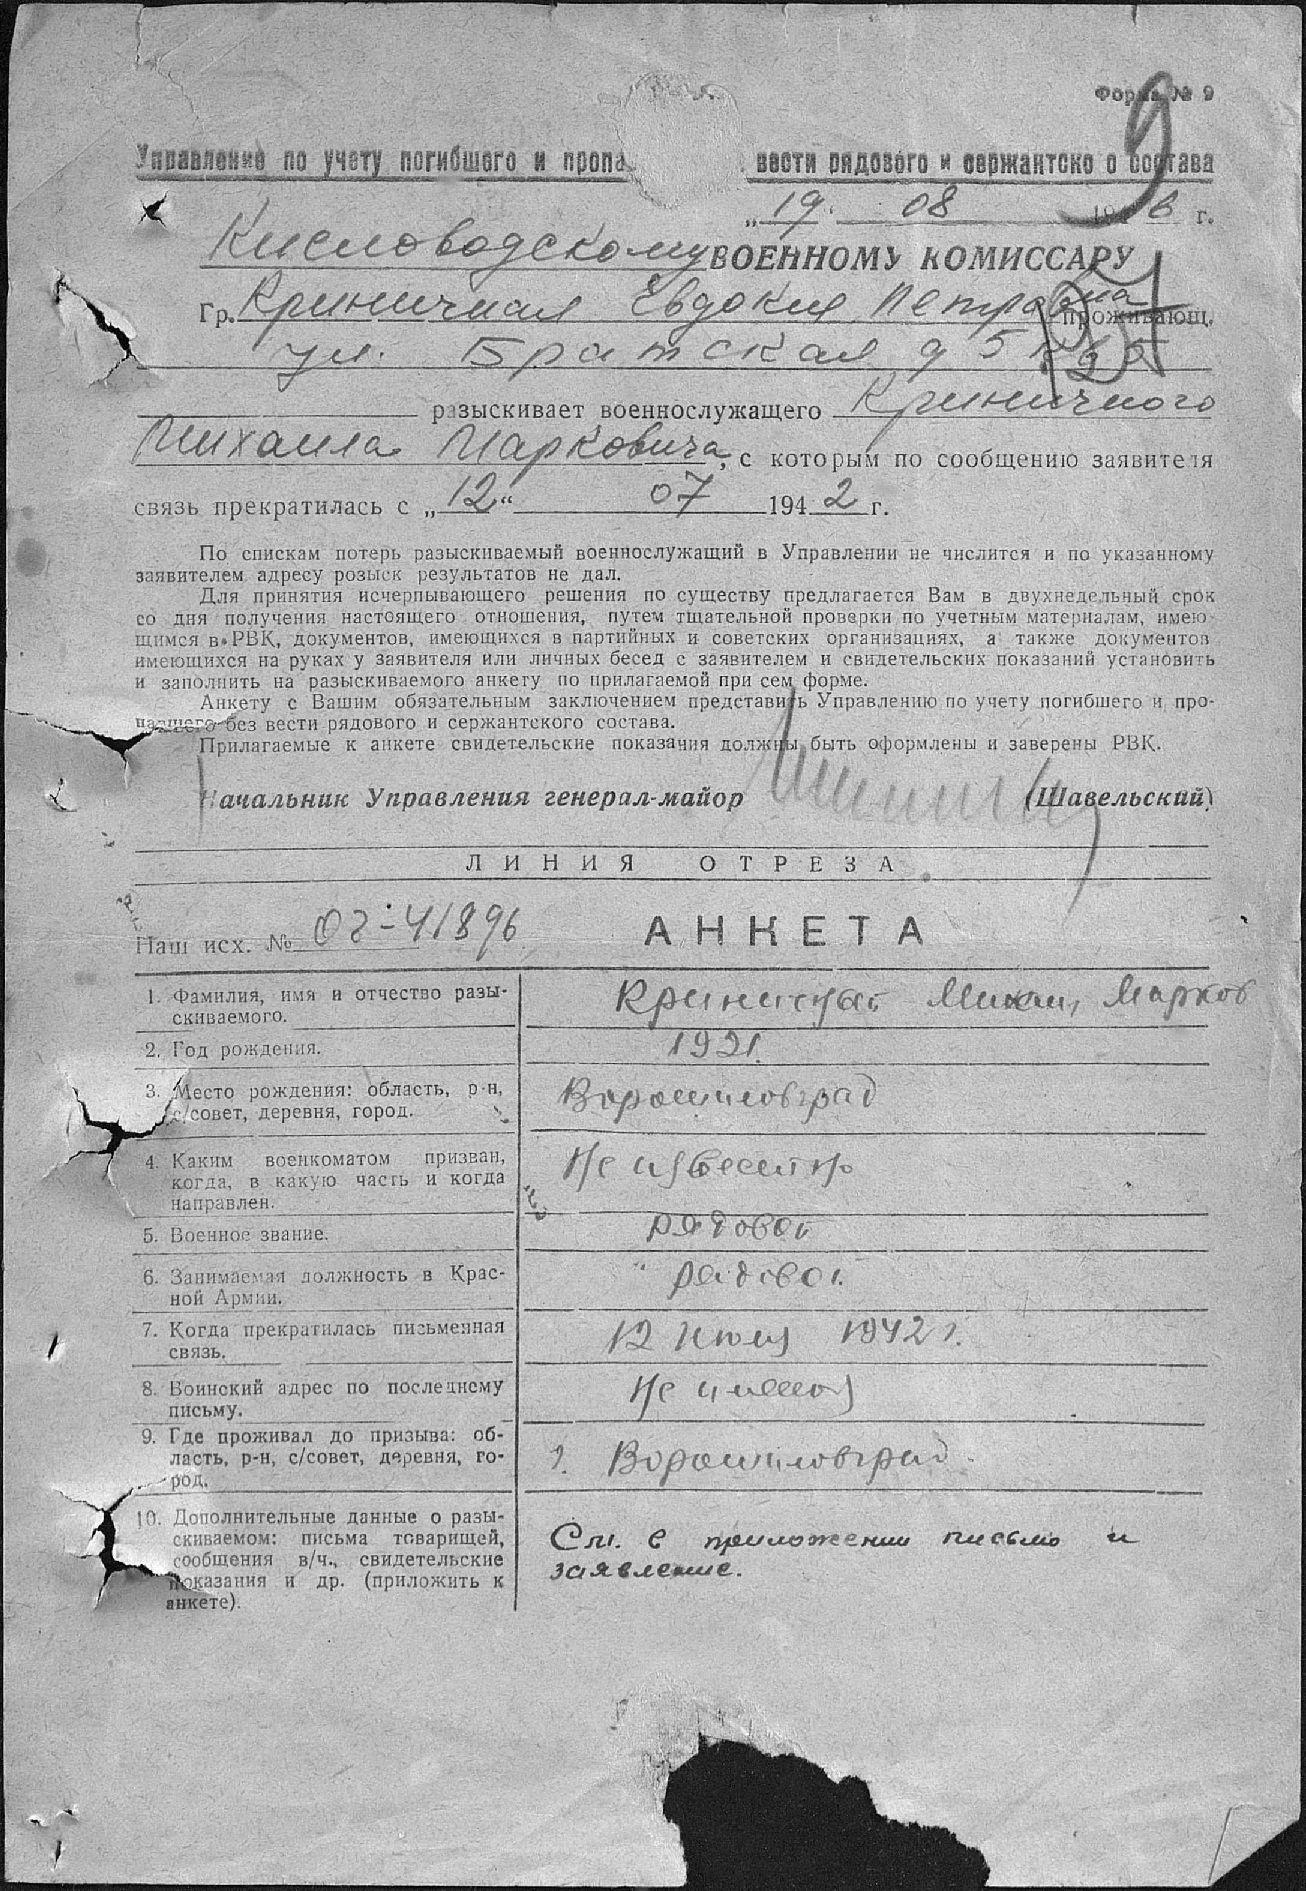 Форма № 9
9
Управление по учету погибшего и пропа вести рядового и сержантско о состава
„19“ 08 194 6 г.
Кисловодскому ВОЕННОМУ КОМИССАРУ
Гр. Криничная Евдокия Петровна проживающ.
ул. Братская д 5
разыскивает военнослужащего Криничного
Михаила Марковича, с которым по сообщению заявителя
связь прекратилась с „12“ 07 1942 г.
По спискам потерь разыскиваемый военнослужащий в Управлении не числится и по указанному
заявителем адресу розыск результатов не дал.
Для принятия исчерпывающего решения по существу предлагается Вам в двухнедельный срок
со дня получения настоящего отношения, путем тщательной проверки по учетным материалам, имею-
щимся в РВК, документов, имеющихся в партийных и советских организациях, а также документов
имеющихся на руках у заявителя или личных бесед с заявителем и свидетельских показаний установить
и заполнить на разыскиваемого анкету по прилагаемой при сем форме.
Анкету с Вашим обязательным заключением представить Управлению по учету погибшего и про-
павшего без вести рядового и сержантского состава.
Прилагаемые к анкете свидетельские показания должны быть оформлены и заверены РВК.
Начальник Управления генерал-майор (Шавельский)
ЛИНИЯ ОТРЕЗА
Наш исх. № 02-41896 АНКЕТА
1. Фамилия, имя и отчество разы-
скиваемого.
Криничный Михаил Марков
2. Год рождения.
1921.
3. Место рождения: область, р-н,
с/совет, деревня, город.
Ворошиловград
4. Каким военкоматом призван,
когда, в какую часть и когда
направлен.
Не известно
5. Военное звание.
рядовой
6. Занимаемая должность в Крас-
ной Армии.
" рядовой
7. Когда прекратилась письменная
связь.
12 июля 1942 г.
8. Воинский адрес по последнему
письму.
Не имеется
9. Где проживал до призыва: об-
ласть, р-н, с/совет, деревня, го-
род.
г. Ворошиловград.
10. Дополнительные данные о разы-
скиваемом: письма товарищей,
сообщения в/ч., свидетельские
показания и др. (приложить к
анкете).
См. в приложении письмо и
заявление.